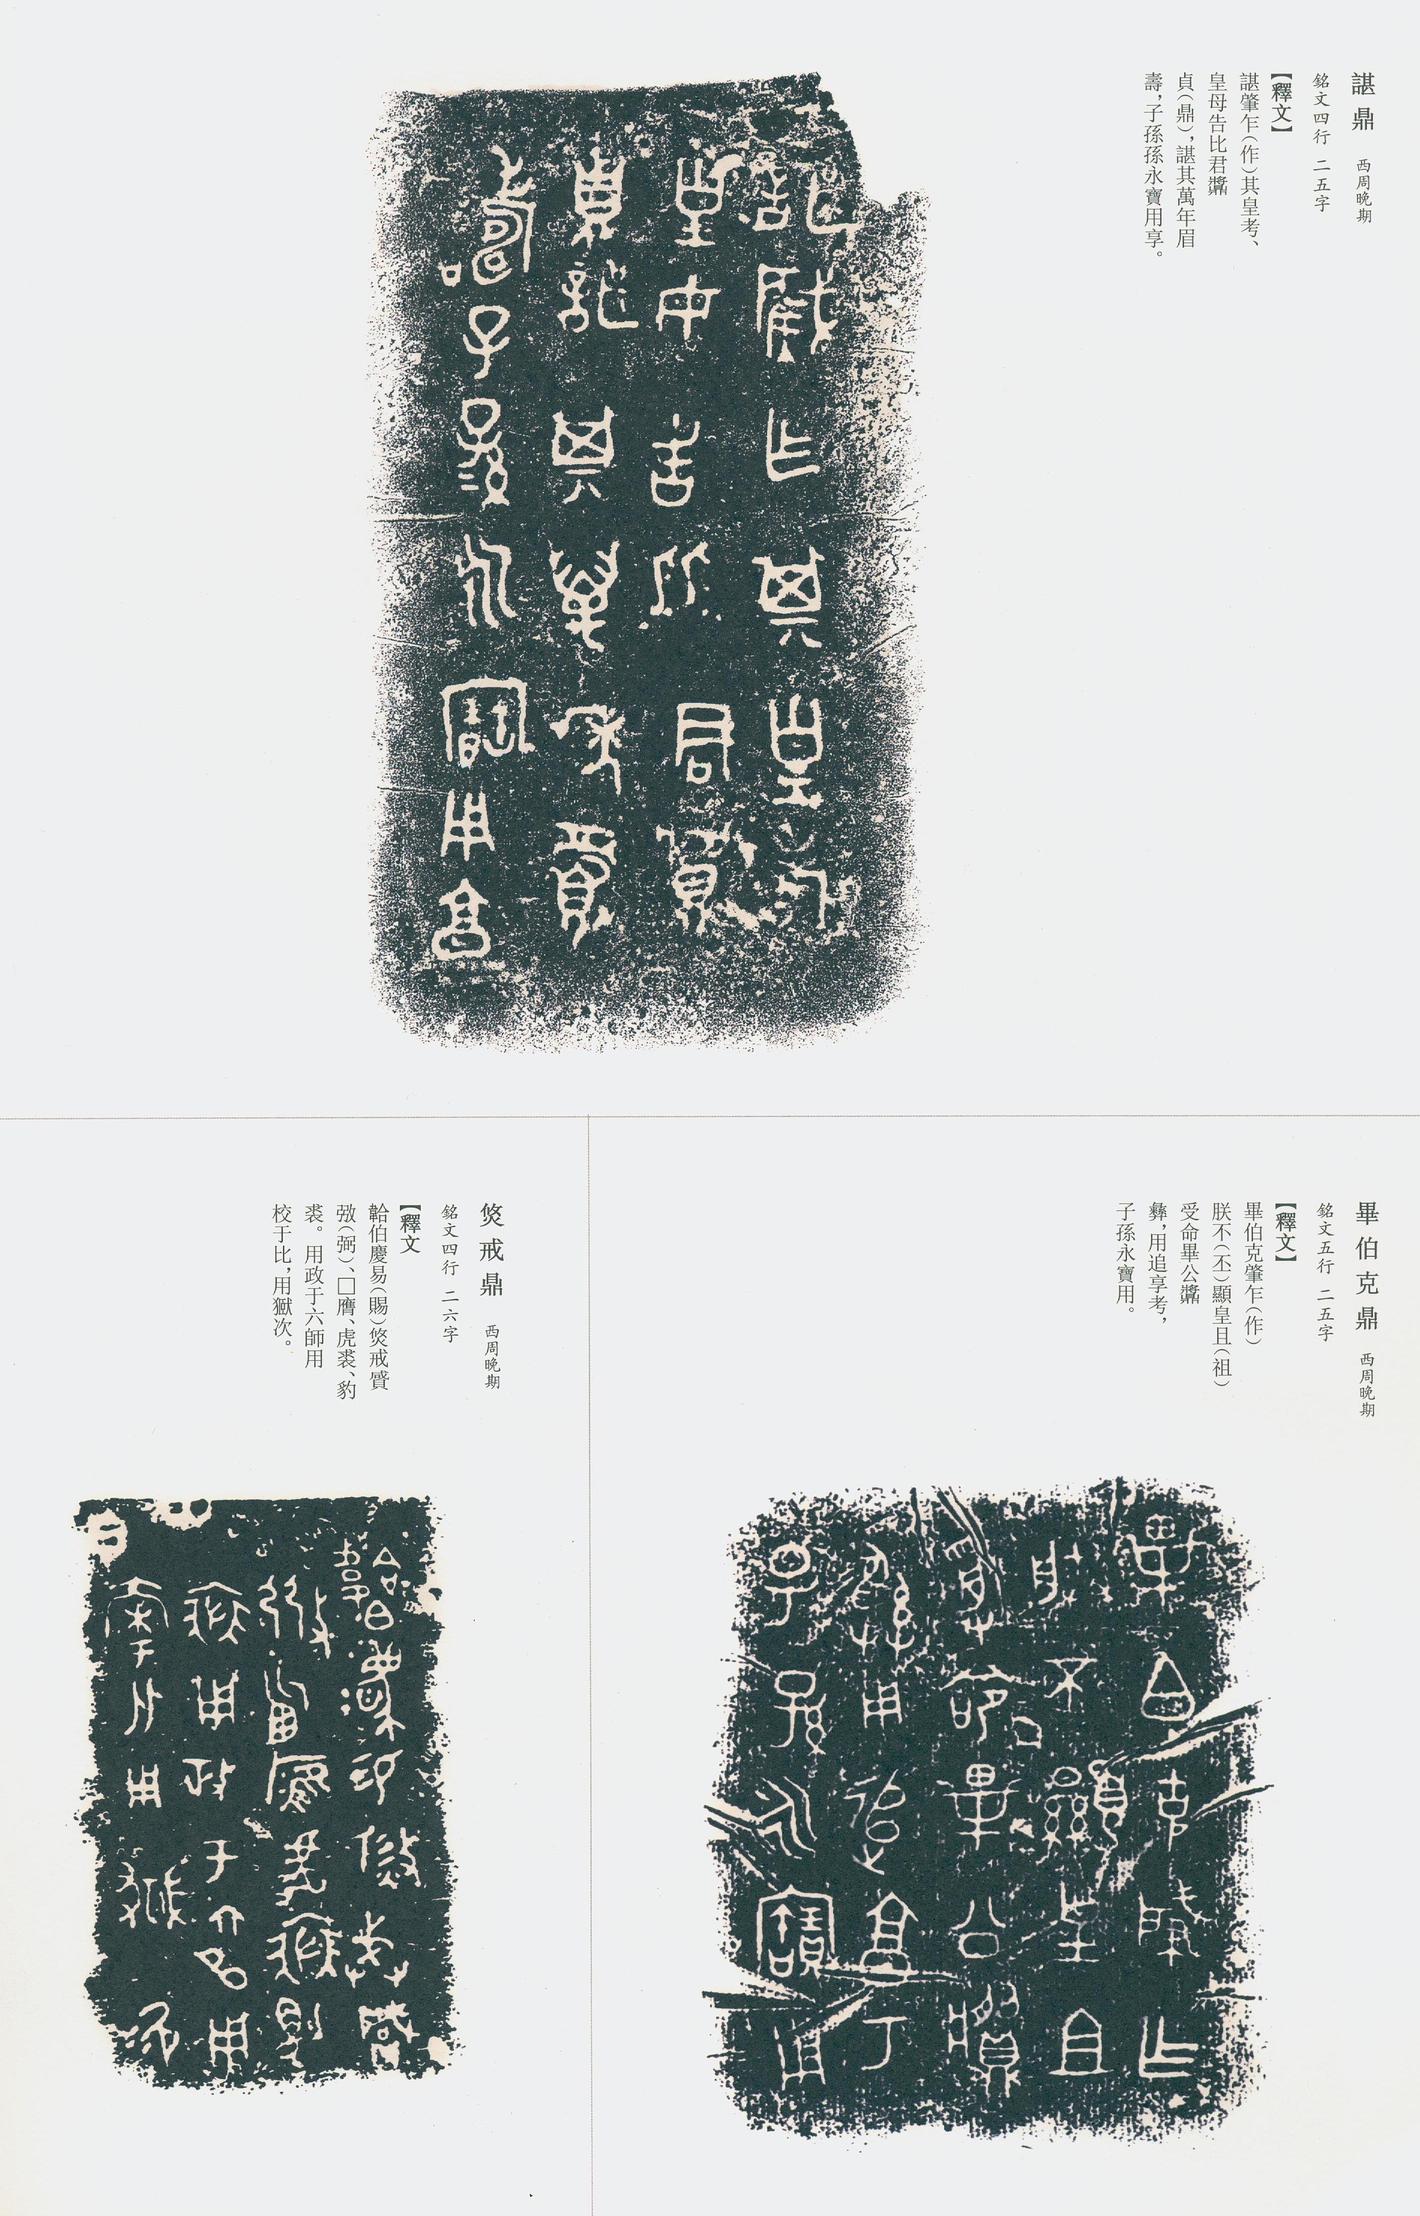 諶鼎 西周晚期
銘文四行 二五字
【釋文】
諶肇乍(作)其皇考、
皇母告比君䵼
貞(鼎),諶其萬年眉
壽,子孫孫永寶用享。
畢伯克鼎 西周晚期
銘文五行 二五字
【釋文】
畢伯克肇乍(作)
朕不(丕)顯皇且(祖)
受命畢公䵼
彝,用追享考,
子孫永寶用。
㷟戒鼎 西周晚期
銘文四行 二六字
【釋文】
韐伯慶易(賜)㷟戒
弼)、□膺、虎裘、豹
裘。用政于六師用
校于比,用獄次。